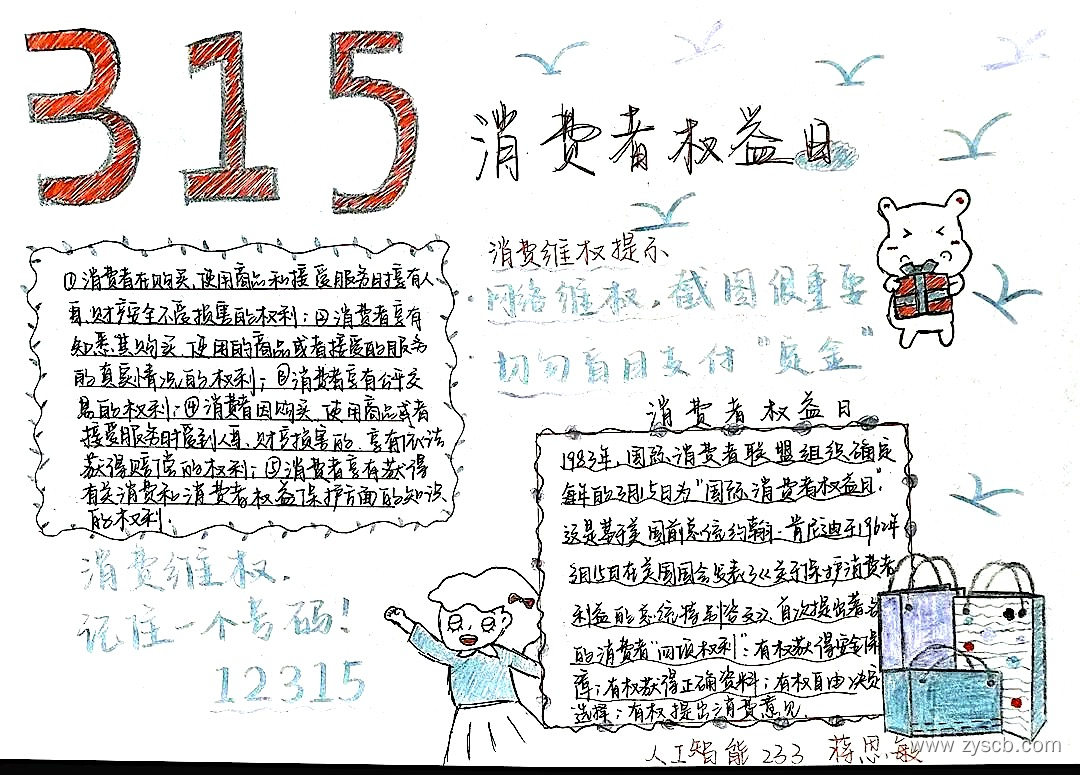 315
消费者权益日
消费维权提示
网络维权，截图很重要
切勿盲目支付“定金”
①消费者在购买、使用商品和接受服务时享有人
身、财产安全不受损害的权利；②消费者享有
知悉其购买、使用的商品或者接受的服务
的真实情况的权利；③消费者享有公平交
易的权利；④消费者因购买、使用商品或者
接受服务时受到人身、财产损害的，享有依法
获得赔偿的权利；⑤消费者享有获得
有关消费和消费者权益保护方面的知识
的权利。
消费维权，
记住一个号码！
12315
消费者权益日
1983年，国际消费者联盟组织确定
每年的3月15日为“国际消费者权益日”。
这是基于美国前总统约翰·肯尼迪于1962年
3月15日在美国国会发表了《关于保护消费者
利益的总统特别咨文》，首次提出著名
的消费者“四项权利”：有权获得安全保
障；有权获得正确资料；有权自由决定
选择；有权提出消费意见。
人工智能233 蒋思敏
www.zyscb.com